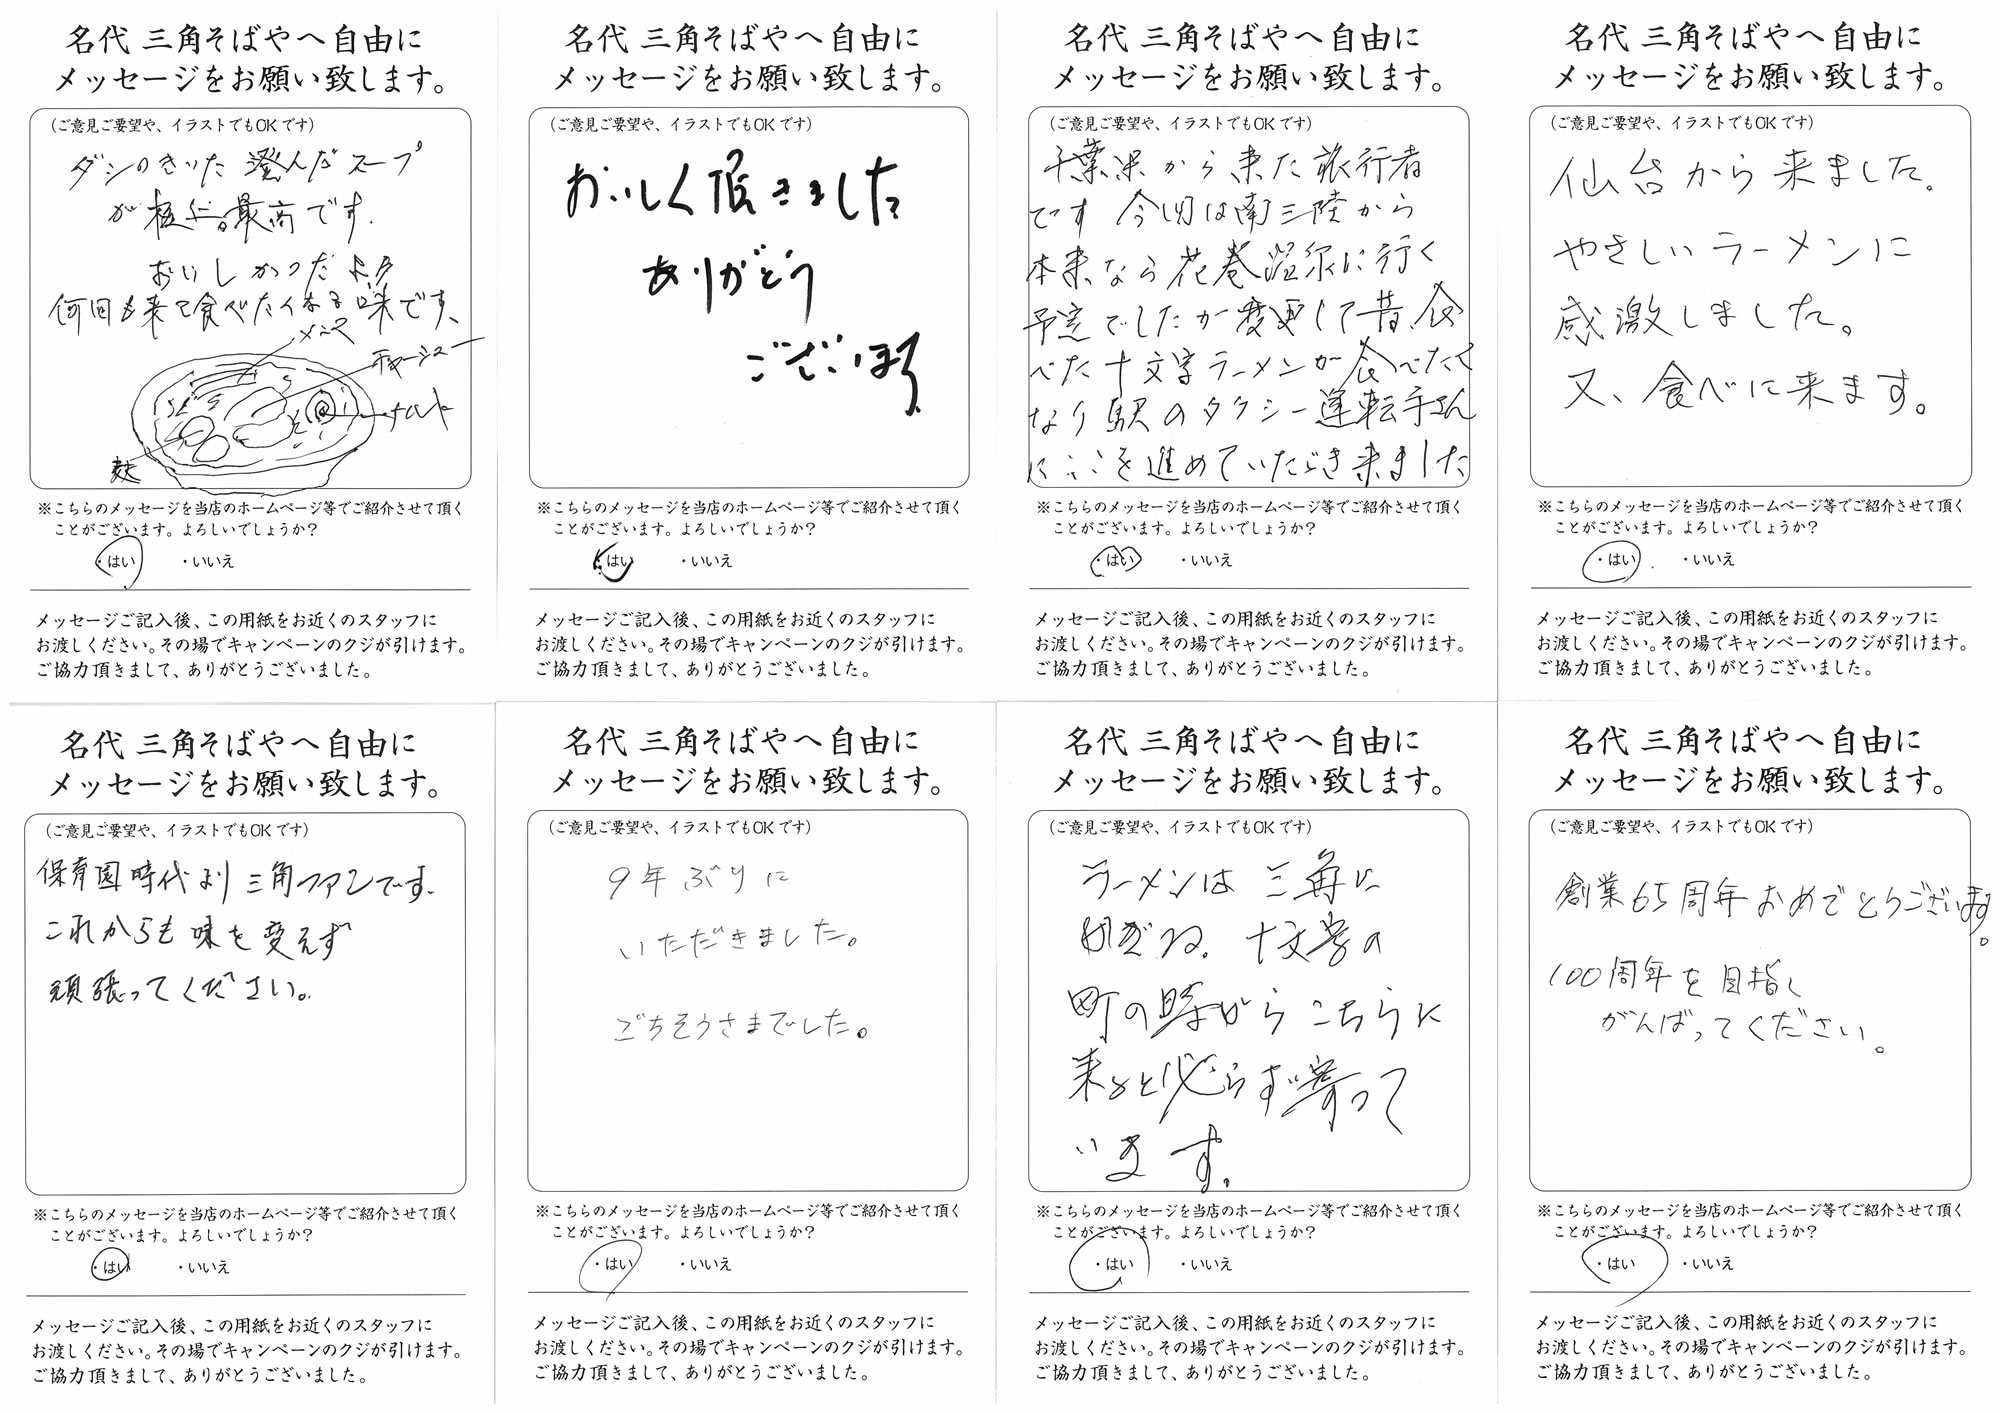 名代 三角そばやへ自由に
メッセージをお願い致します。
(ご意見ご要望や、イラストでもOKです)
ダシのきいた 澄んだスープ
が 最高です。
おいしかった
何回も来て食べたくなる味です、
メンマ
チャーシュー
ナルト
麩
※こちらのメッセージを当店のホームページ等でご紹介させて頂く
ことがございます。よろしいでしょうか?
・はい ・いいえ
メッセージご記入後、この用紙をお近くのスタッフに
お渡しください。その場でキャンペーンのクジが引けます。
ご協力頂きまして、ありがとうございました。
名代 三角そばやへ自由に
メッセージをお願い致します。
(ご意見ご要望や、イラストでもOKです)
おいしく頂きました
ありがとう
ございます
※こちらのメッセージを当店のホームページ等でご紹介させて頂く
ことがございます。よろしいでしょうか?
・はい ・いいえ
メッセージご記入後、この用紙をお近くのスタッフに
お渡しください。その場でキャンペーンのクジが引けます。
ご協力頂きまして、ありがとうございました。
名代 三角そばやへ自由に
メッセージをお願い致します。
(ご意見ご要望や、イラストでもOKです)
千葉県から来た旅行者
です 今回は南三陸から
本来なら花巻温泉に行く
予定でしたが変更して昔、食
べた十文字ラーメンが食べたく
なり駅のタクシー運転手さん
にここを進めていただき来ました
※こちらのメッセージを当店のホームページ等でご紹介させて頂く
ことがございます。よろしいでしょうか?
・はい ・いいえ
メッセージご記入後、この用紙をお近くのスタッフに
お渡しください。その場でキャンペーンのクジが引けます。
ご協力頂きまして、ありがとうございました。
名代 三角そばやへ自由に
メッセージをお願い致します。
(ご意見ご要望や、イラストでもOKです)
仙台から来ました。
やさしいラーメンに
感激しました。
又、食べに来ます。
※こちらのメッセージを当店のホームページ等でご紹介させて頂く
ことがございます。よろしいでしょうか?
・はい ・いいえ
メッセージご記入後、この用紙をお近くのスタッフに
お渡しください。その場でキャンペーンのクジが引けます。
ご協力頂きまして、ありがとうございました。
名代 三角そばやへ自由に
メッセージをお願い致します。
(ご意見ご要望や、イラストでもOKです)
保育園時代より三角ファンです。
これからも味を変えず
頑張ってください。
※こちらのメッセージを当店のホームページ等でご紹介させて頂く
ことがございます。よろしいでしょうか?
・はい ・いいえ
メッセージご記入後、この用紙をお近くのスタッフに
お渡しください。その場でキャンペーンのクジが引けます。
ご協力頂きまして、ありがとうございました。
名代 三角そばやへ自由に
メッセージをお願い致します。
(ご意見ご要望や、イラストでもOKです)
9年ぶりに
いただきました。
ごちそうさまでした。
※こちらのメッセージを当店のホームページ等でご紹介させて頂く
ことがございます。よろしいでしょうか?
・はい ・いいえ
メッセージご記入後、この用紙をお近くのスタッフに
お渡しください。その場でキャンペーンのクジが引けます。
ご協力頂きまして、ありがとうございました。
名代 三角そばやへ自由に
メッセージをお願い致します。
(ご意見ご要望や、イラストでもOKです)
ラーメンは 三角に
かぎる。十文字の
町の時からこちらに
来ると必らず寄って
います。
※こちらのメッセージを当店のホームページ等でご紹介させて頂く
ことがございます。よろしいでしょうか?
・はい ・いいえ
メッセージご記入後、この用紙をお近くのスタッフに
お渡しください。その場でキャンペーンのクジが引けます。
ご協力頂きまして、ありがとうございました。
名代 三角そばやへ自由に
メッセージをお願い致します。
(ご意見ご要望や、イラストでもOKです)
創業65周年おめでとうございます。
100周年を目指し
がんばってください。
※こちらのメッセージを当店のホームページ等でご紹介させて頂く
ことがございます。よろしいでしょうか?
・はい ・いいえ
メッセージご記入後、この用紙をお近くのスタッフに
お渡しください。その場でキャンペーンのクジが引けます。
ご協力頂きまして、ありがとうございました。